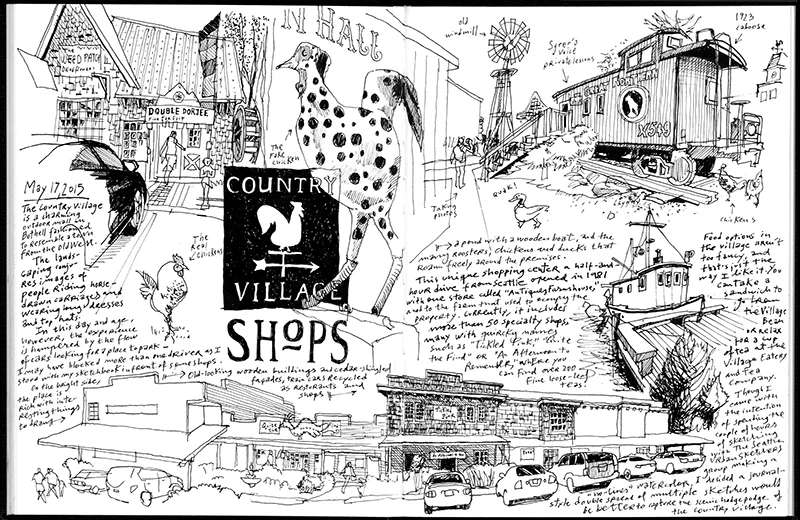 THE
WEED PATCH
DOUBLE DORJEE
N HALL
The
fake
chicken
COUNTRY
VILLAGE
SHOPS
The
Real
Chickens
old
windmill
Syren's
Voice
private lessons
1923
caboose
X1549
Taking
photos
QUAK!
chickens
May 17, 2015
The Country Village
is a charming
outdoor mall in
Bothell fashioned
to resemble a town
from the old West.
The lands-
caping conju-
res images of
people riding horse-
drawn carriages and
wearing long dresses
and top hats.
In this day and age,
however, the experience
is hampered by the flow
of cars looking for a place to park —
I may have blocked more than one driver as I
stood with my sketchbook in front of some shops.
On the bright side,
the place is
rich with inte-
resting things
to draw
Old-looking wooden buildings and cedar-shingled
façades, train cars recycled
as restorants and
shops
a pond with a wooden boat, and the
many roosters, chickens and ducks that
roam freely around the premises.
This unique shopping center a half-and-
hour drive from Seattle opened in 1981
with one store called "Antiques Farmhouse,"
and to the farm that used to occupy the
property. Currently, it includes
more than 50 specialty shops,
many with quirky names
such as "Tickled Pink," "Quite
the Find" or "An Afternoon to
Remember," where you
can find over 200
fine loose-leaf
teas!
Food options in
the village aren't
too fancy, and
that's just the
way I like it. You
can take a
sandwich to
go from
the Village
Bean
or relax
for a cup
of tea at the
Village Eatery
and Tea
Company.
Though I
came with
the intention
of spending the
couple of hours
of sketching
with the Seattle
Urban Sketchers
group making a
"no-lines" watercolor, I decided a journal-
style double spread of multiple sketches would
be better to capture the scenic hodgepodge of
the Country Village.